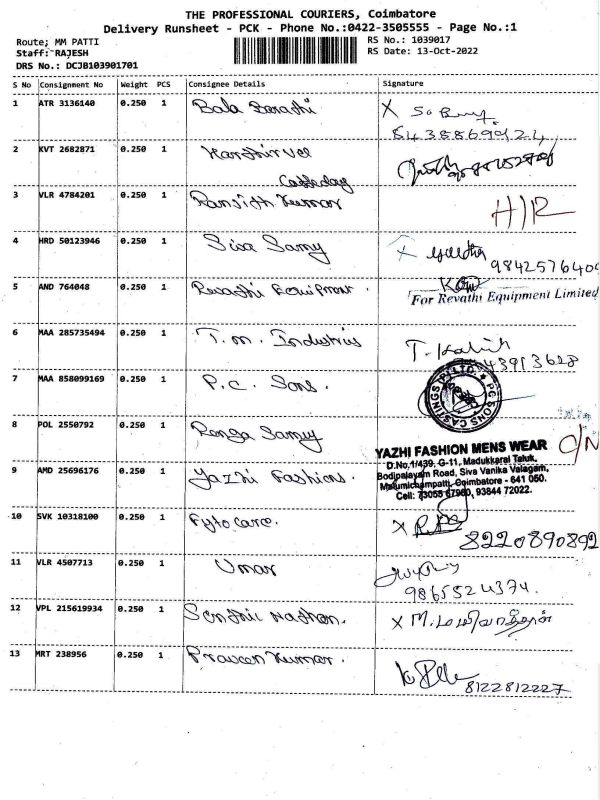 THE PROFESSIONAL COURIERS, Coimbatore
Delivery Runsheet - PCK - Phone No.:0422-3505555 - Page No.:1
Route; MM PATTI
RS No.: 1039017
Staff: RAJESH
RS Date: 13-Oct-2022
DRS No.: DCJB103901701
S No Consignment No Weight PCS Consignee Details Signature
1 ATR 3136140 0.250 1 Bala
2 KVT 2682871 0.250 1
3 VLR 4784201 0.250 1 Ranjith Kumar H/R
4 HRD 50123946 0.250 1 Siva Samy X
984257640
5 AND 764048 0.250 1 Revathi Equipment.
For Revathi Equipment Limited
6 MAA 285735494 0.250 1 T.m. Industris T.
43913628
7 MAA 858099169 0.250 1 P.C. Sons.
PG SONS CASTINGS P LTD
8 POL 2550792 0.250 1 Ranga Samy
YAZHI FASHION MENS WEAR
D.No.1/439, G-11, Madukkarai Taluk,
9 AMD 25696176 0.250 1 Yazhi Fashions.
Bodipalayam Road, Siva Vanika Valagam,
Malumichampatti, Coimbatore - 641 050.
Cell: 73055 67960, 93844 72022.
10 SVK 10318100 0.250 1 Fytocare. X
8220890892
11 VLR 4507713 0.250 1 Umar
9865524374.
12 VPL 215619934 0.250 1 Senthil Nathan. X M.
13 MRT 238956 0.250 1 Praveen Kumar.
8122812227